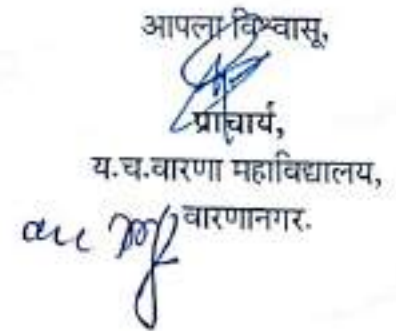 आपला विश्वासू,
प्राचार्य,
य.च.वारणा महाविद्यालय,
वारणानगर.